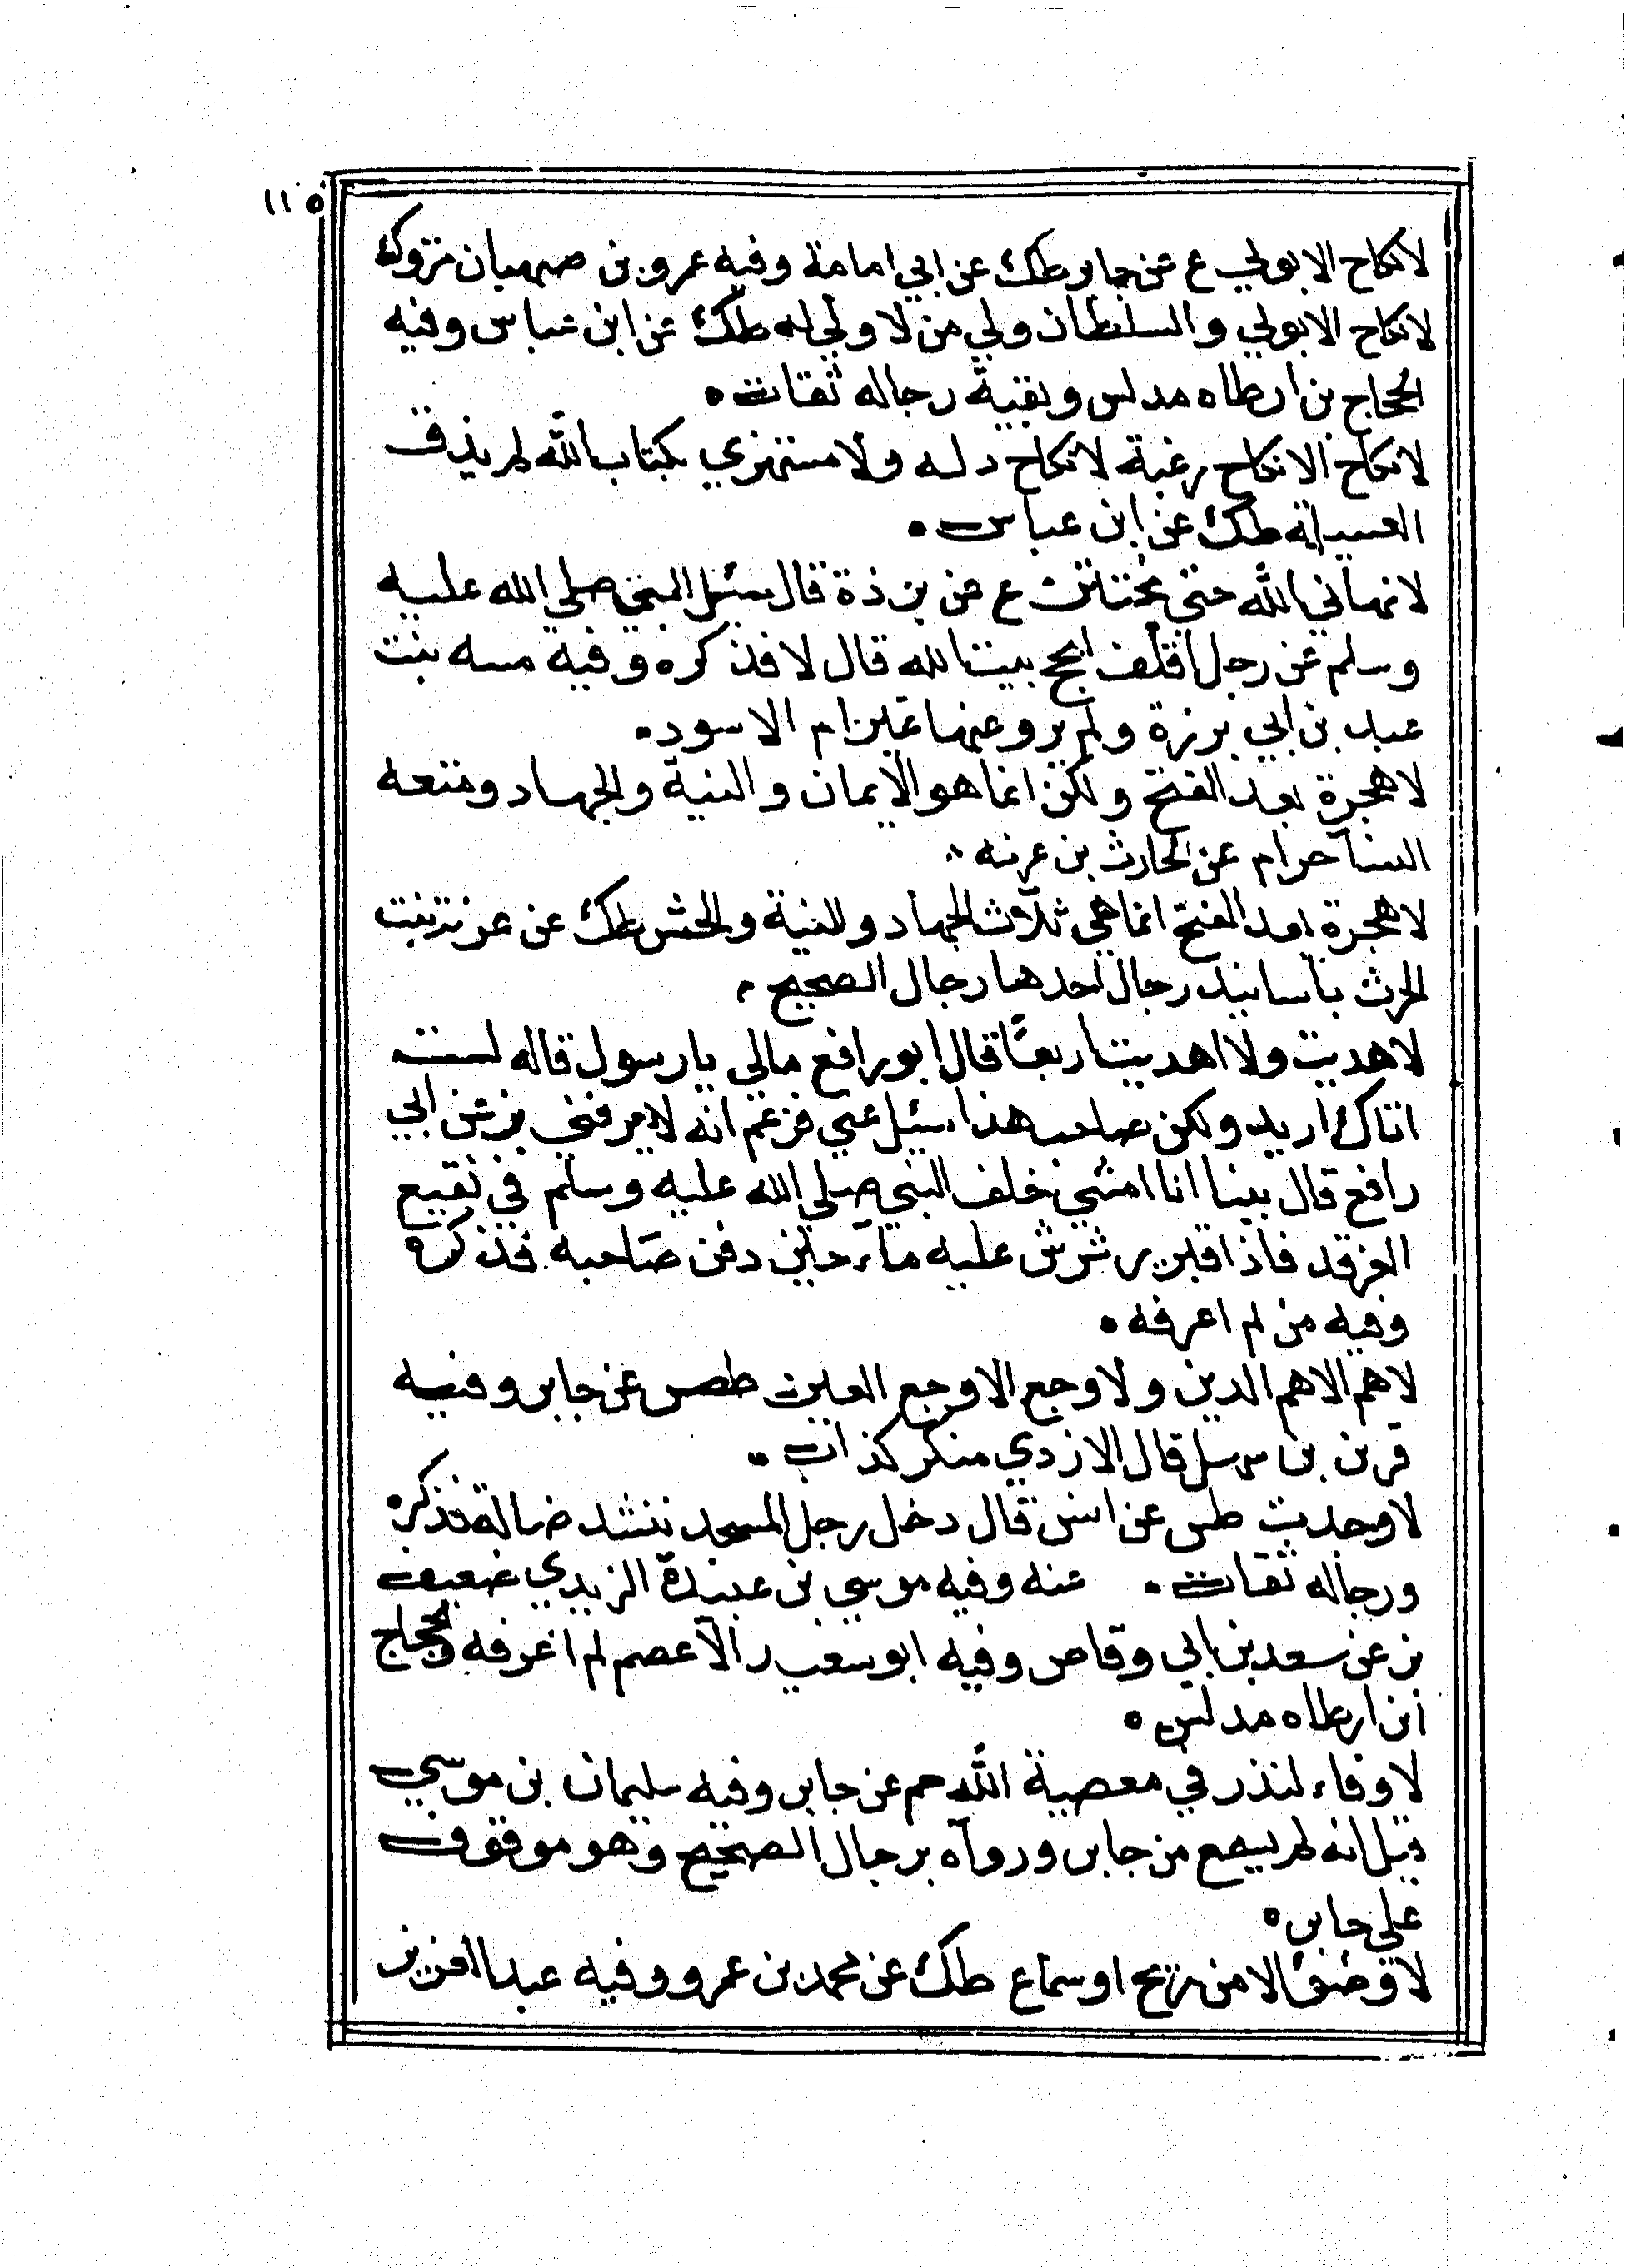 ١١٥
لا نكاح الا بولي ع عن جابر طك عن ابي امامة وفيه عمرو بن صهبان متروك
لا نكاح الا بولي والسلطان ولي من لا ولي له طك عن ابن عباس وفيه
الحجاج بن ارطاه مدلس وبقية رجاله ثقات
لا نكاح الا نكاح رغبة لا نكاح دلسه ولا مستهزي بكتاب الله لم يذق
العسيلة طك عن ابن عباس
لا نهاني الله حتى يختتن ع عن برزة قال سئل النبي صلى الله عليه
وسلم عن رجل اقلف ايحج بيت الله قال لا فذكره وفيه منيه بنت
عبيد بن ابي برزة ولم يرو عنها غير ام الاسود
لا هجرة بعد الفتح ولكن انما هو الايمان والنية والجهاد ومتعه
النسا حرام عن الحارث بن عزيه
لا هجرة بعد الفتح انما هي ثلاث الجهاد والنية والحشر طك عن بنت
الحرث باسانيد رجال احدها رجال الصحيح
لا هديت ولا اهديت اربعا قال ابو رافع مالي يا رسول قاله لست
اناك اريد ولكن صاحب هذا سئل عني فزعم انه لا يعرفني بز عن ابي
رافع قال بينا انا امشي خلف النبي صلى الله عليه وسلم في بقيع
الغرقد فاذا قبر يرشرش عليه ماء حين دفن صاحبه فذكره
وفيه من لم اعرفه
لا هم الا هم الدين ولا وجع الا وجع العين طص عن جابر وفيه
قرين بن سهل قال الازدي منكر كذاب
لا وجدت طس عن انس قال دخل رجل المسجد ينشد ضالة فذكره
ورجاله ثقات عنه وفيه موسي بن عبيدة الزبيدي ضعيف
بز عن سعد بن ابي وقاص وفيه ابو سعيد الاعصم لم اعرفه والحجاج
ابن ارطاه مدلس
لا وفاء لنذر في معصية الله حم عن جابر وفيه سليمان بن موسي
قيل انه لم يسمع من جابر ورواه برجال الصحيح وهو موقوف
على جابر
لا وضؤ الا من ريح او سماع طك عن محمد بن عمرو وفيه عبد العزيز